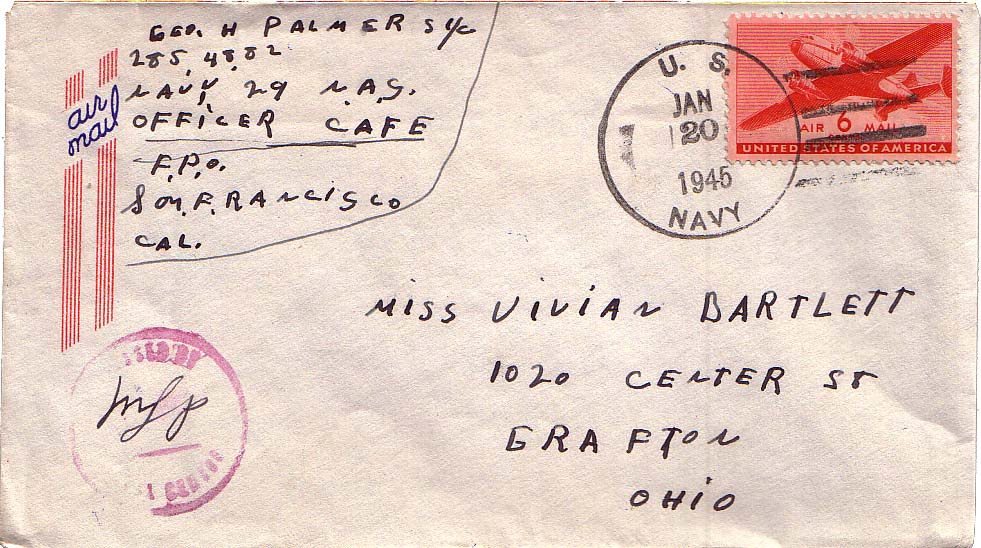 GEO. H PALMER S 1/C
285,48,82
NAVY 29 N.A.S.
OFFICER CAFE
F.P.O.
SAN.FRANCISCO
CAL.
air
mail
U. S.
JAN
20
1945
NAVY
AIR 6¢ MAIL
UNITED STATES OF AMERICA
MISS VIVIAN BARTLETT
1020 CENTER ST
GRAFTON
OHIO